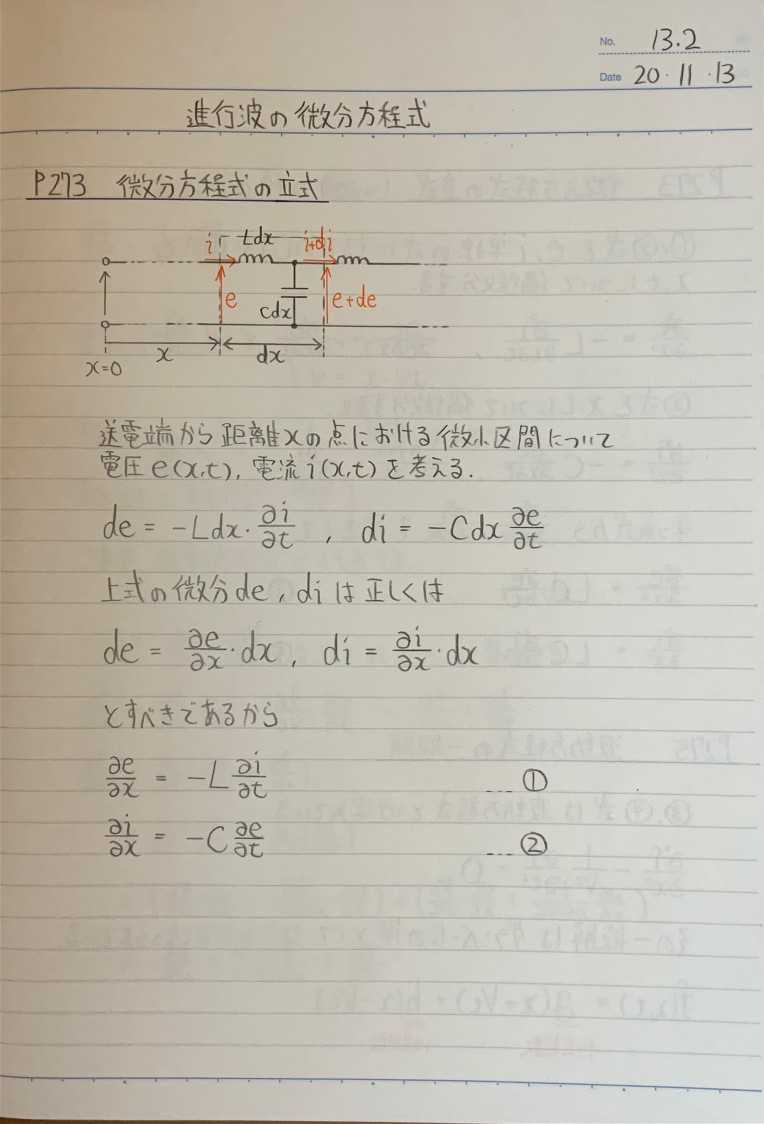 No. 13.2
Date 20・11・13
進行波の微分方程式
P273 微分方程式の立式
i Ldx i+di
e cdx e+de
x dx
x=0
送電端から距離xの点における微小区間について
電圧e(x,t), 電流i(x,t)を考える.
de = -Ldx・∂i/∂t , di = -Cdx ∂e/∂t
上式の微分de, diは正しくは
de = ∂e/∂x・dx, di = ∂i/∂x・dx
とすべきであるから
∂e/∂x = -L ∂i/∂t ... ①
∂i/∂x = -C ∂e/∂t ... ②